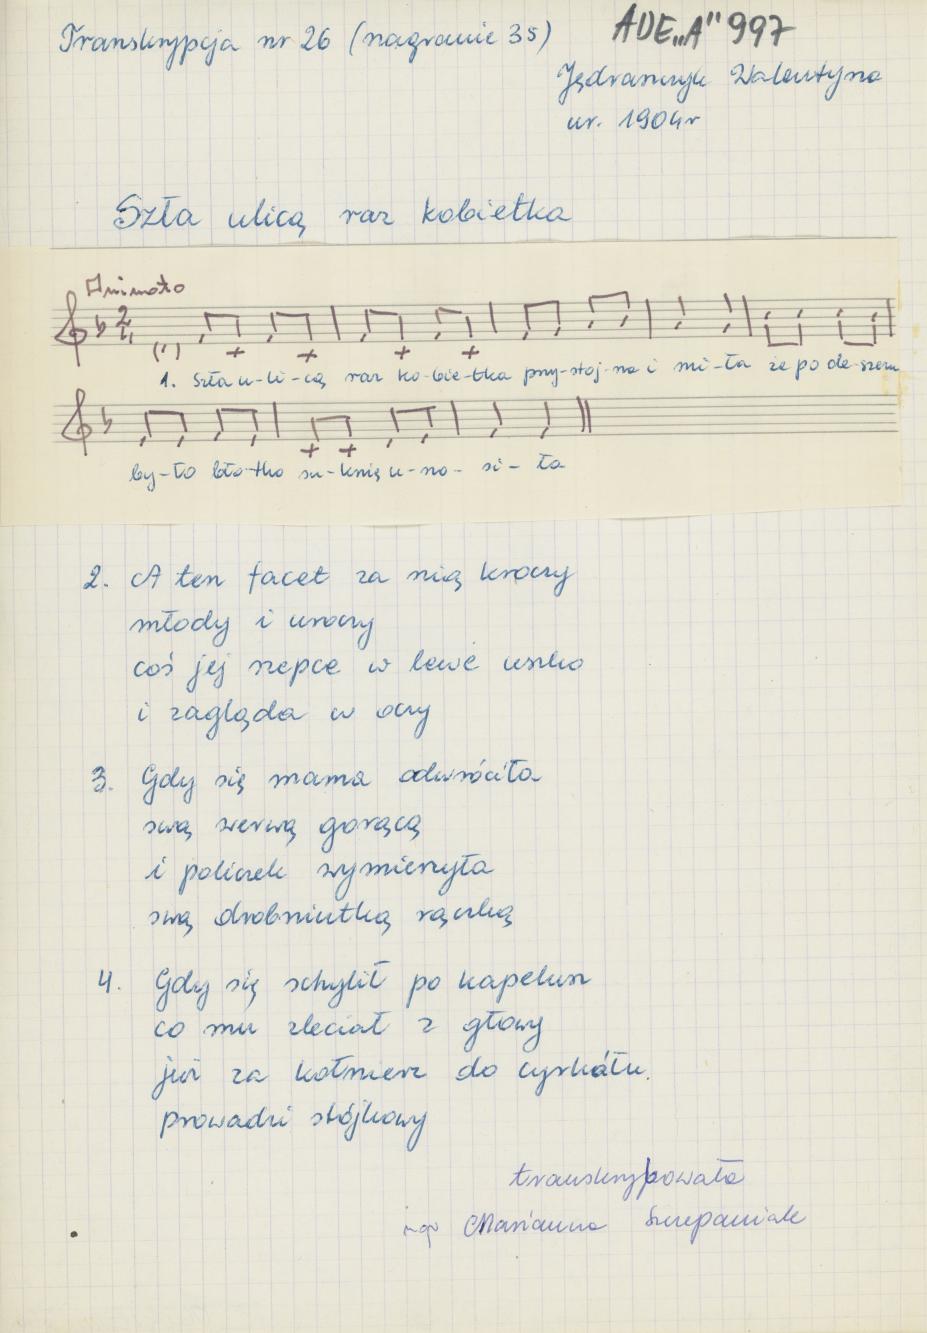 Transkrypcja nr 26 (nagranie 35)
ADE „A" 997
Jędraszczyk Walentyna
ur. 1904r
Szła ulicą raz kobietka
Animato
1. Szła u-li-cą raz ko-bie-tka przy-stoj-na i mi-ła że po de-szczu
by-ło bło-tko su-knię u-no-si-ła
2. A ten facet za nią kroczy
młody i uroczy
coś jej szepce w lewe uszko
i zagląda w oczy
3. Gdy się mama odwróciła
swą werwą gorącą
i policzek wymierzyła
swą drobniutką rączką
4. Gdy się schylił po kapelusz
co mu zleciał z głowy
już za kołnierz do cyrkułu
prowadzi stójkowy
transkrybowała
mgr Marianna Szczepaniak